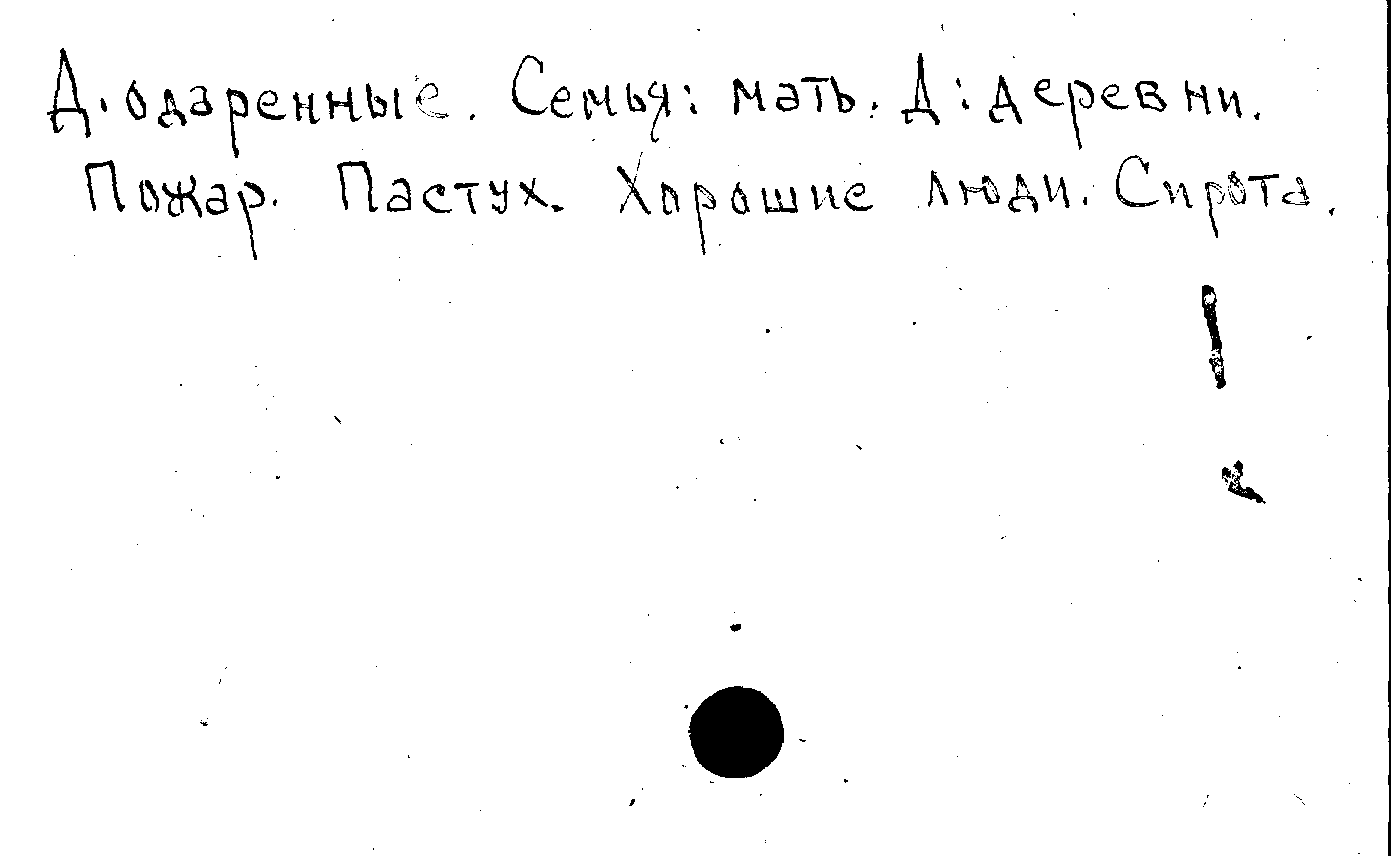 Д. одаренные. Семья: мать. Д: деревни.
Пожар. Пастух. Хорошие люди. Сирота.